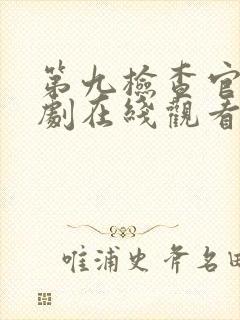 第九檢查官
劇在綫觀看
唯浦史斧名田